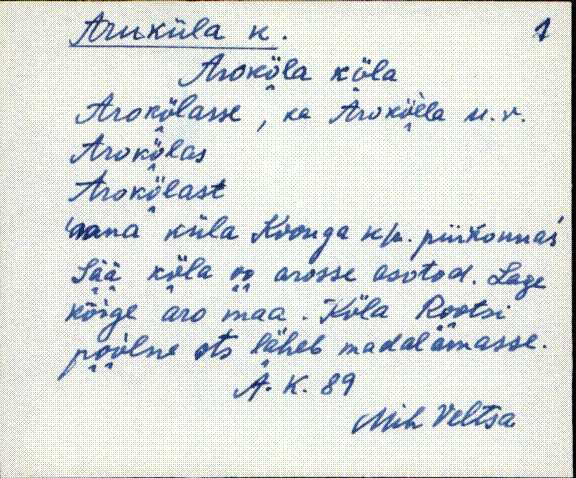 Aruküla k. 1
Aroköla köla
Arokölasse, ka Arokölla u. v.
Arokölas
Arokölast
vana küla Koonga k/n. piirkonnas
Sää köla oo arosse asotod. Lage
kõige aro maa. Köla Rootsi
poolne ots läheb madalamasse.
A. K. 89
Mih Veltsa